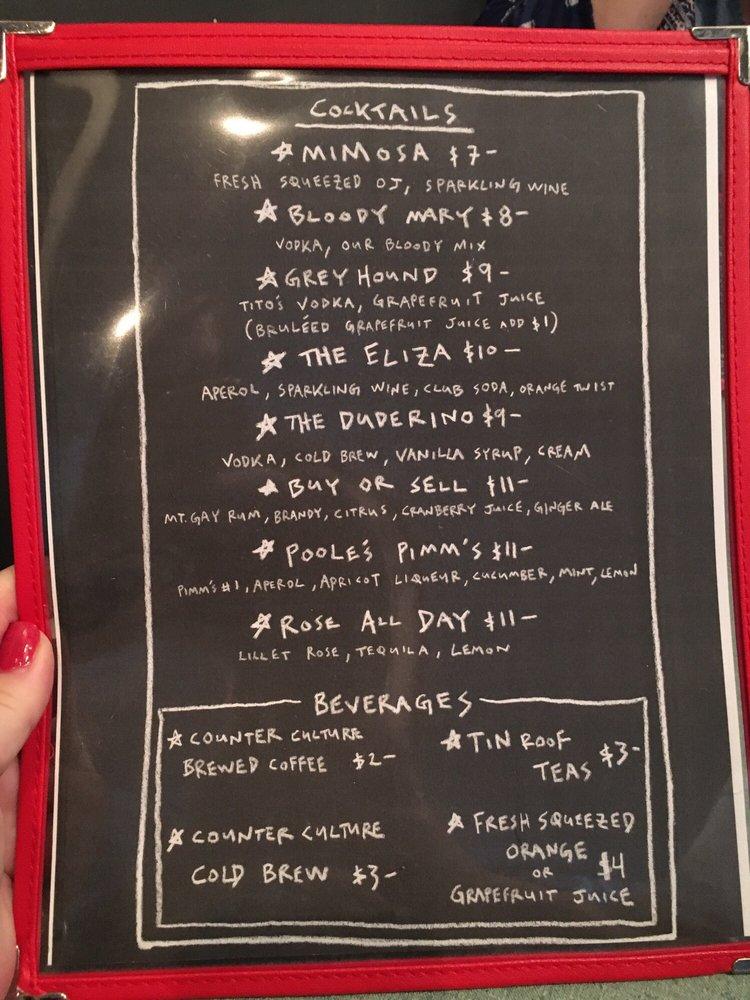 COCKTAILS
☆ MIMOSA $7-
FRESH SQUEEZED OJ, SPARKLING WINE
☆ BLOODY MARY $8-
VODKA, OUR BLOODY MIX
☆ GREY HOUND $9-
TITO'S VODKA, GRAPEFRUIT JUICE
(BRULÉED GRAPEFRUIT JUICE ADD $1)
☆ THE ELIZA $10-
APEROL, SPARKLING WINE, CLUB SODA, ORANGE TWIST
☆ THE DUDERINO $9-
VODKA, COLD BREW, VANILLA SYRUP, CREAM
☆ BUY OR SELL $11-
MT. GAY RUM, BRANDY, CITRUS, CRANBERRY JUICE, GINGER ALE
☆ POOLE'S PIMM'S $11-
PIMM'S #1, APEROL, APRICOT LIQUEUR, CUCUMBER, MINT, LEMON
☆ ROSE ALL DAY $11-
LILLET ROSE, TEQUILA, LEMON
BEVERAGES
☆ COUNTER CULTURE
BREWED COFFEE $2-
☆ TIN ROOF
TEAS $3-
☆ COUNTER CULTURE
COLD BREW $3-
☆ FRESH SQUEEZED
ORANGE
OR $4
GRAPEFRUIT JUICE